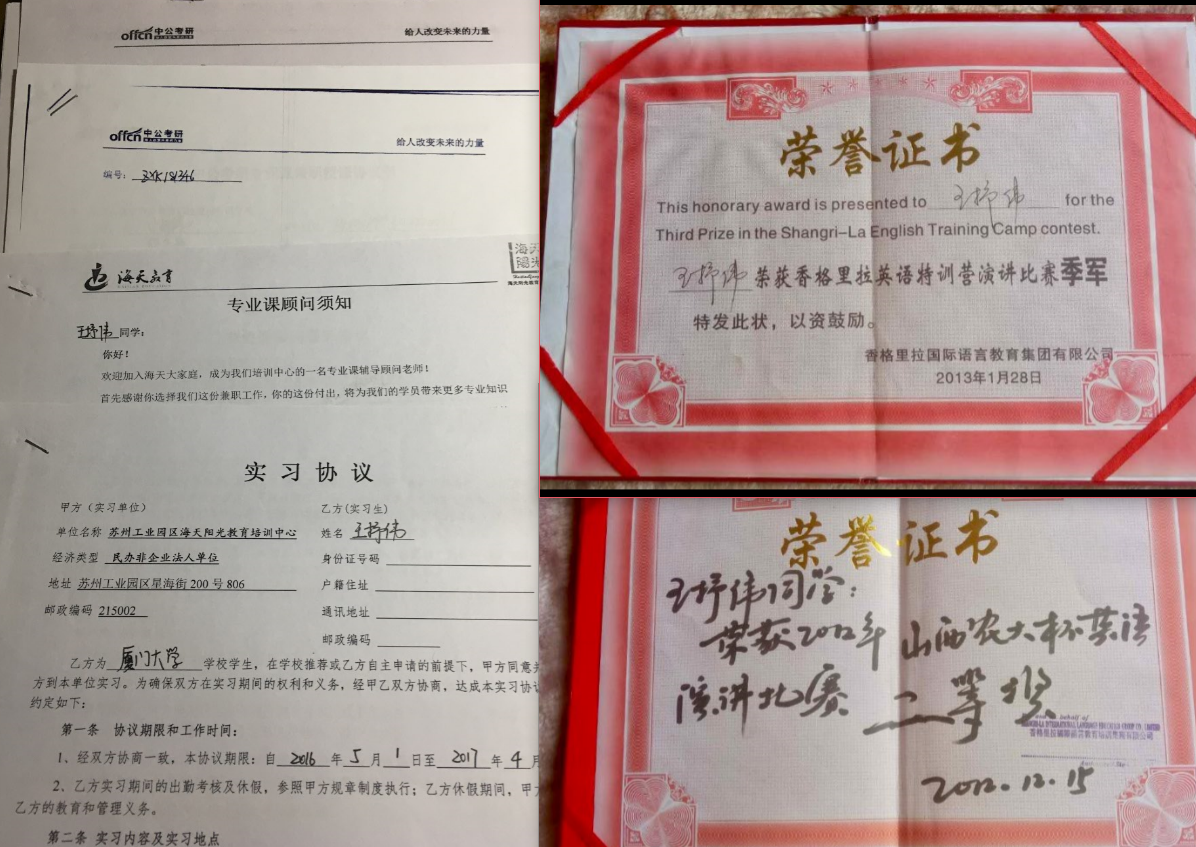 offcn中公考研
给人改变未来的力量
offcn中公考研
给人改变未来的力量
编号：ZYK181346
海天教育
专业课顾问须知
王抒伟同学：
你好！
欢迎加入海天大家庭，成为我们培训中心的一名专业课辅导顾问老师！
首先感谢你选择我们这份兼职工作，你的这份付出，将为我们的学员带来更多专业知识
实习协议
甲方（实习单位）
单位名称 苏州工业园区海天阳光教育培训中心
经济类型 民办非企业法人单位
地址 苏州工业园区星海街 200 号 806
邮政编码 215002
乙方(实习生)
姓名 王抒伟
身份证号码
户籍住址
通讯地址
邮政编码
乙方为 厦门大学 学校学生，在学校推荐或乙方自主申请的前提下，甲方同意
方到本单位实习。为确保双方在实习期间的权利和义务，经甲乙双方协商，达成本实习协议
约定如下：
第一条 协议期限和工作时间：
1、经双方协商一致，本协议期限：自 2016 年 5 月 1 日至 2017 年 4 月
2、乙方实习期间的出勤考核及休假，参照甲方规章制度执行；乙方休假期间，甲方
乙方的教育和管理义务。
第二条 实习内容及实习地点
荣誉证书
This honorary award is presented to 王抒伟 for the
Third Prize in the Shangri-La English Training Camp contest.
王抒伟 荣获香格里拉英语特训营演讲比赛季军
特发此状，以资鼓励。
香格里拉国际语言教育集团有限公司
2013年1月28日
荣誉证书
王抒伟同学：
荣获2012年山西农大杯英语
演讲比赛 二等奖
2012.12.15